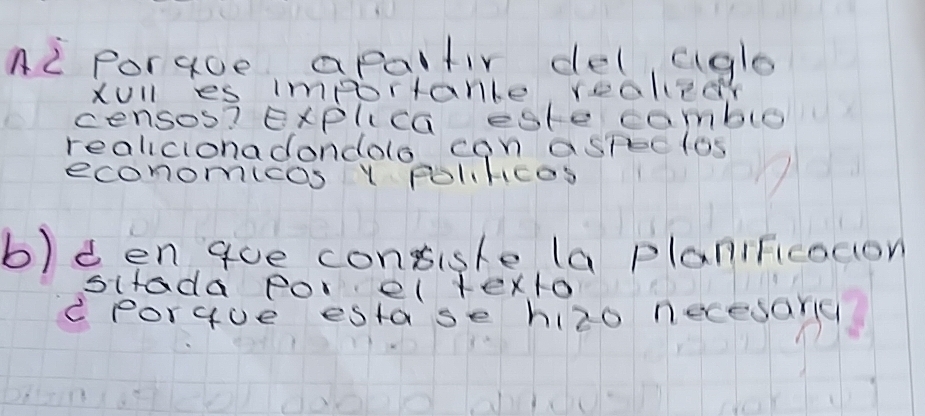 A ¿ Porque apartir del ciglo
XVII es importante realizar
censos? Explica este cambio
realicionadondolo con aspectos
economicos y politicos
b) ¿ en que consiste la planificacion
sitada por el texto
¿ Porque esta se hizo necesaria?